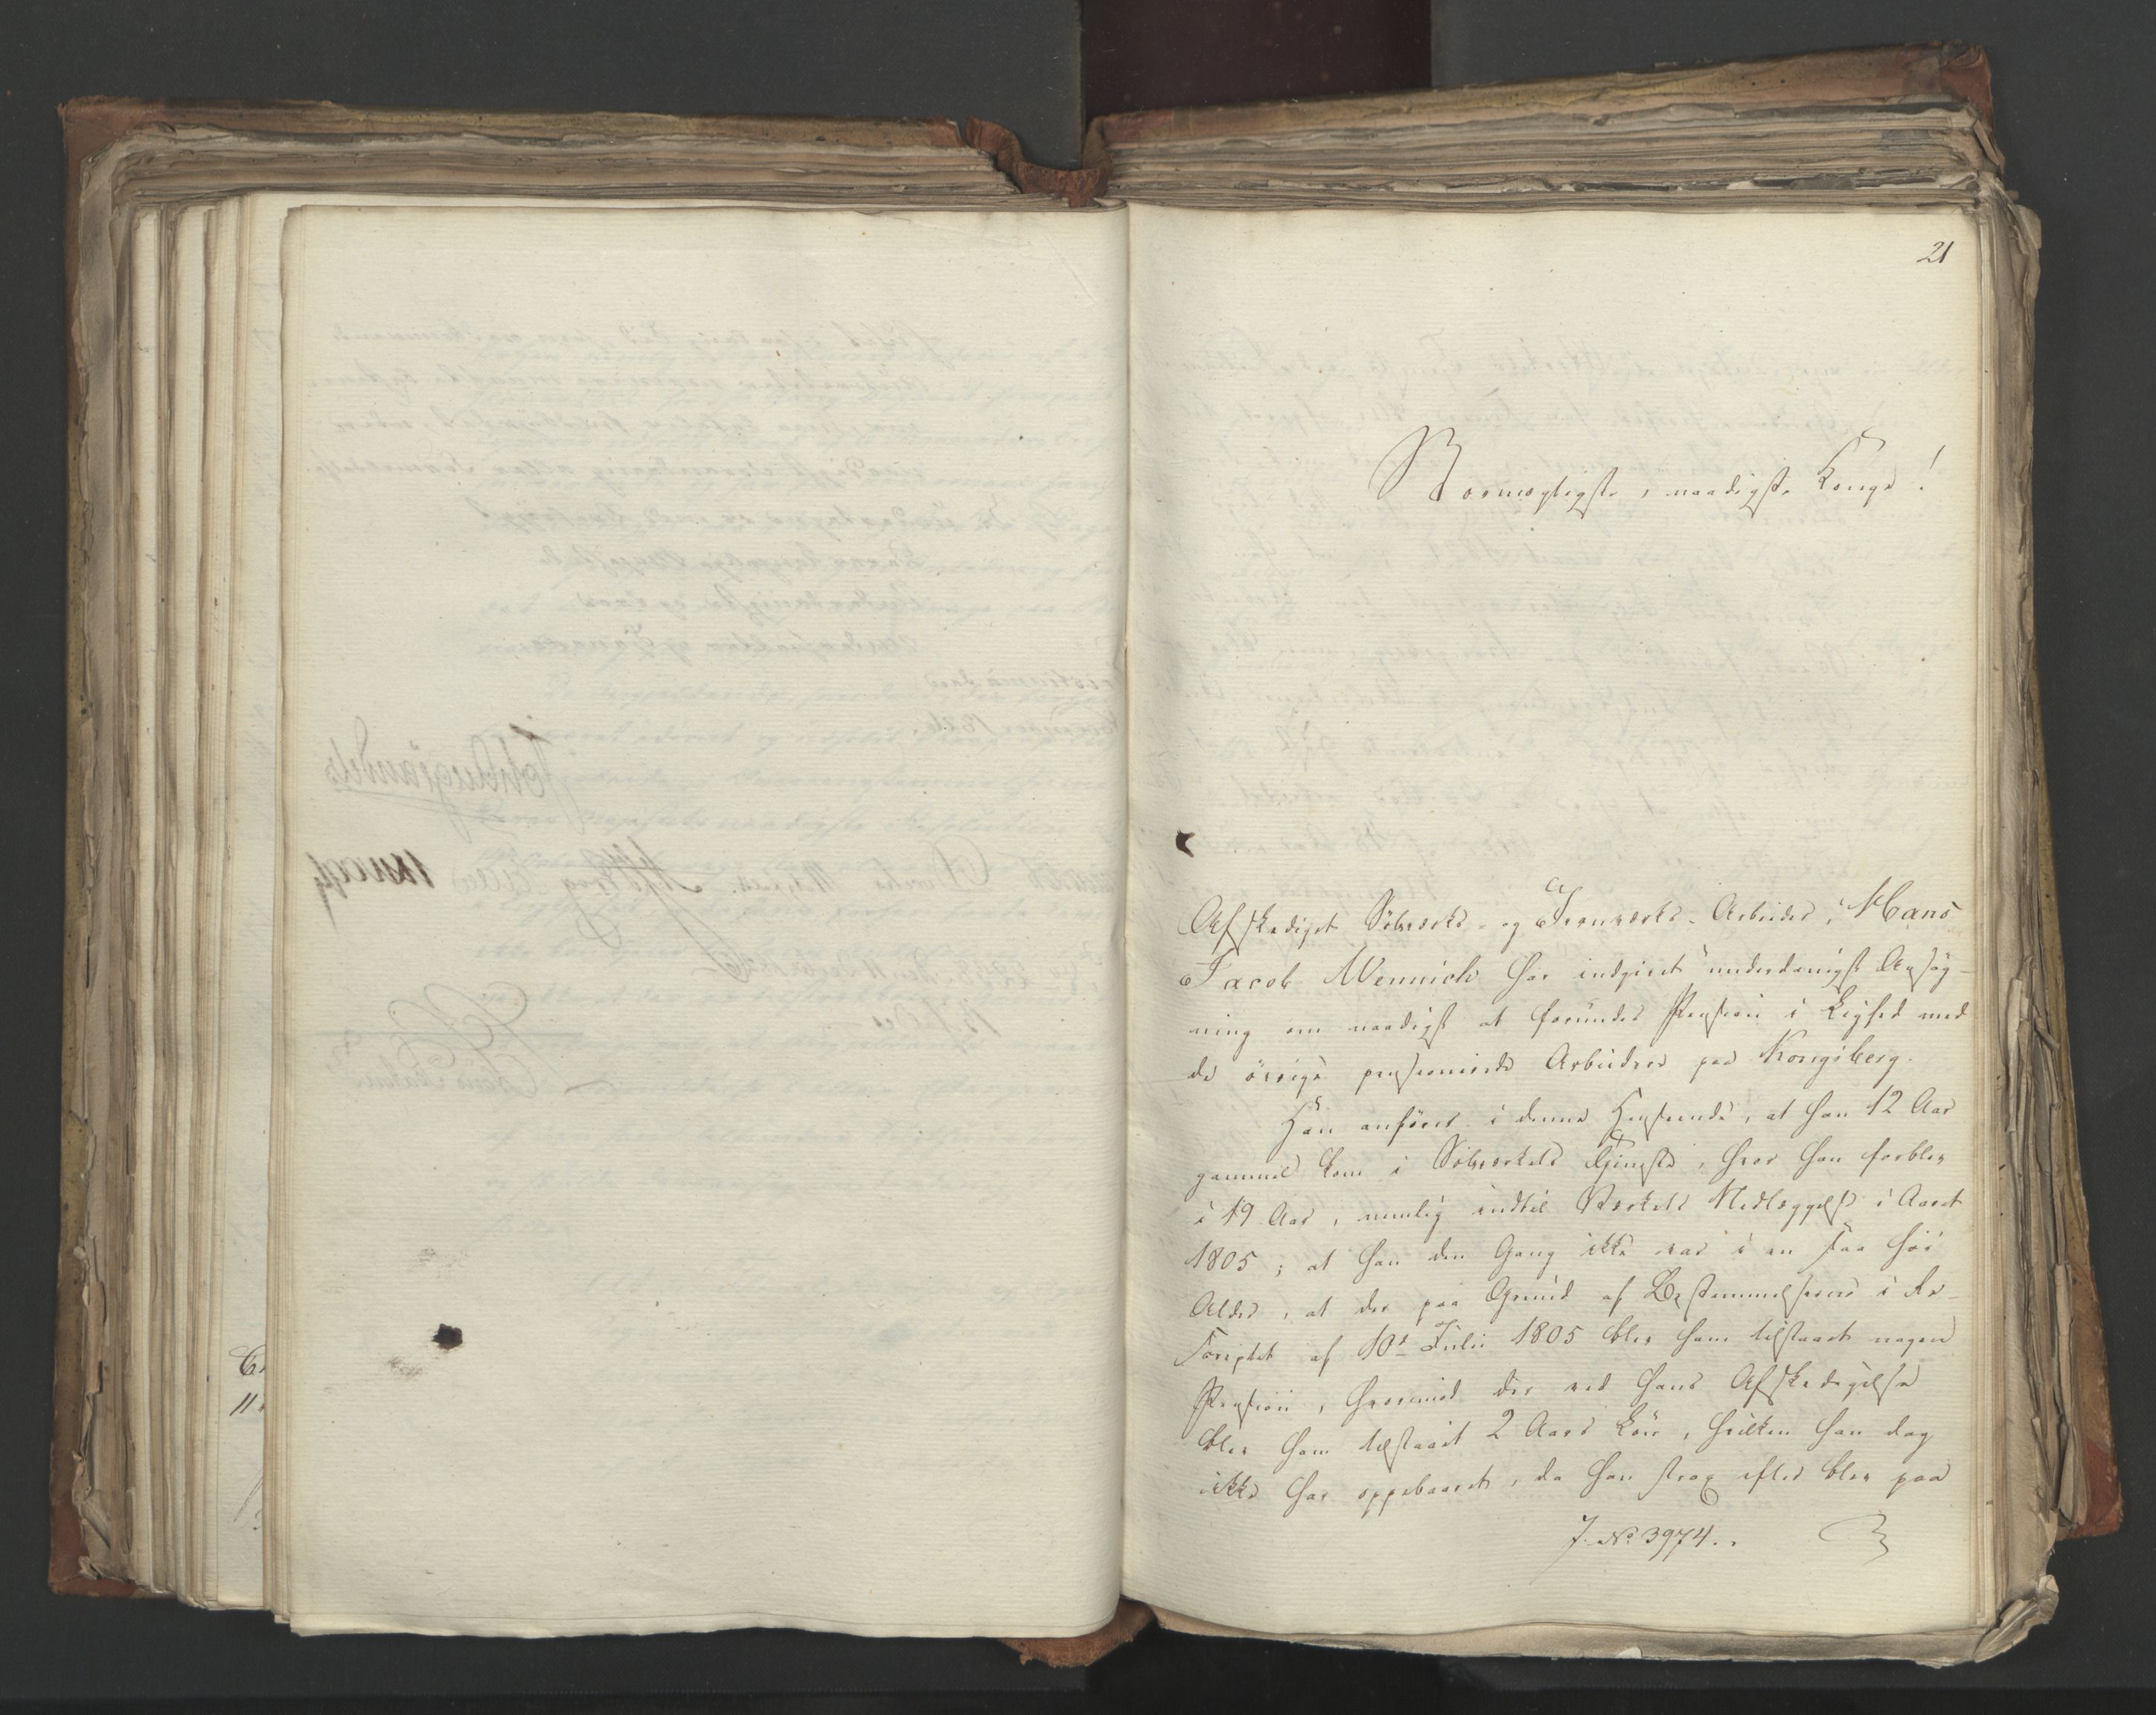 21
Stormægtigste, naadigste Konge!
Afskediget Sölvverks- og Jernverks-Arbeider, Hans
Jacob Wennich har indgivet underdanigst Ansøg-
ning om naadigst at forundes Pension i Lighed med
de övrige pensionerede Arbeidere paa Kongsberg.
Han anförer i denne Henseende, at han 12 Aar
gammel kom i Sölvverkets Tjeneste, hvor han forblev
i 19 Aar, nemlig indtil Verkets Nedlæggelse i Aaret
1805; at han den Gang ikke var i en saa höi
Alder, at der paa Grund af Bestemmelserne i Re-
scriptet af 10de Julii 1805 blev ham tilstaaet nogen
Pension, hvorimod der ved hans Afskedigelse
blev ham tilstaaet 2 Aars Lön, hvilken han dog
ikke har oppebaaret, da han strax efter blev paa
J. No 3974.